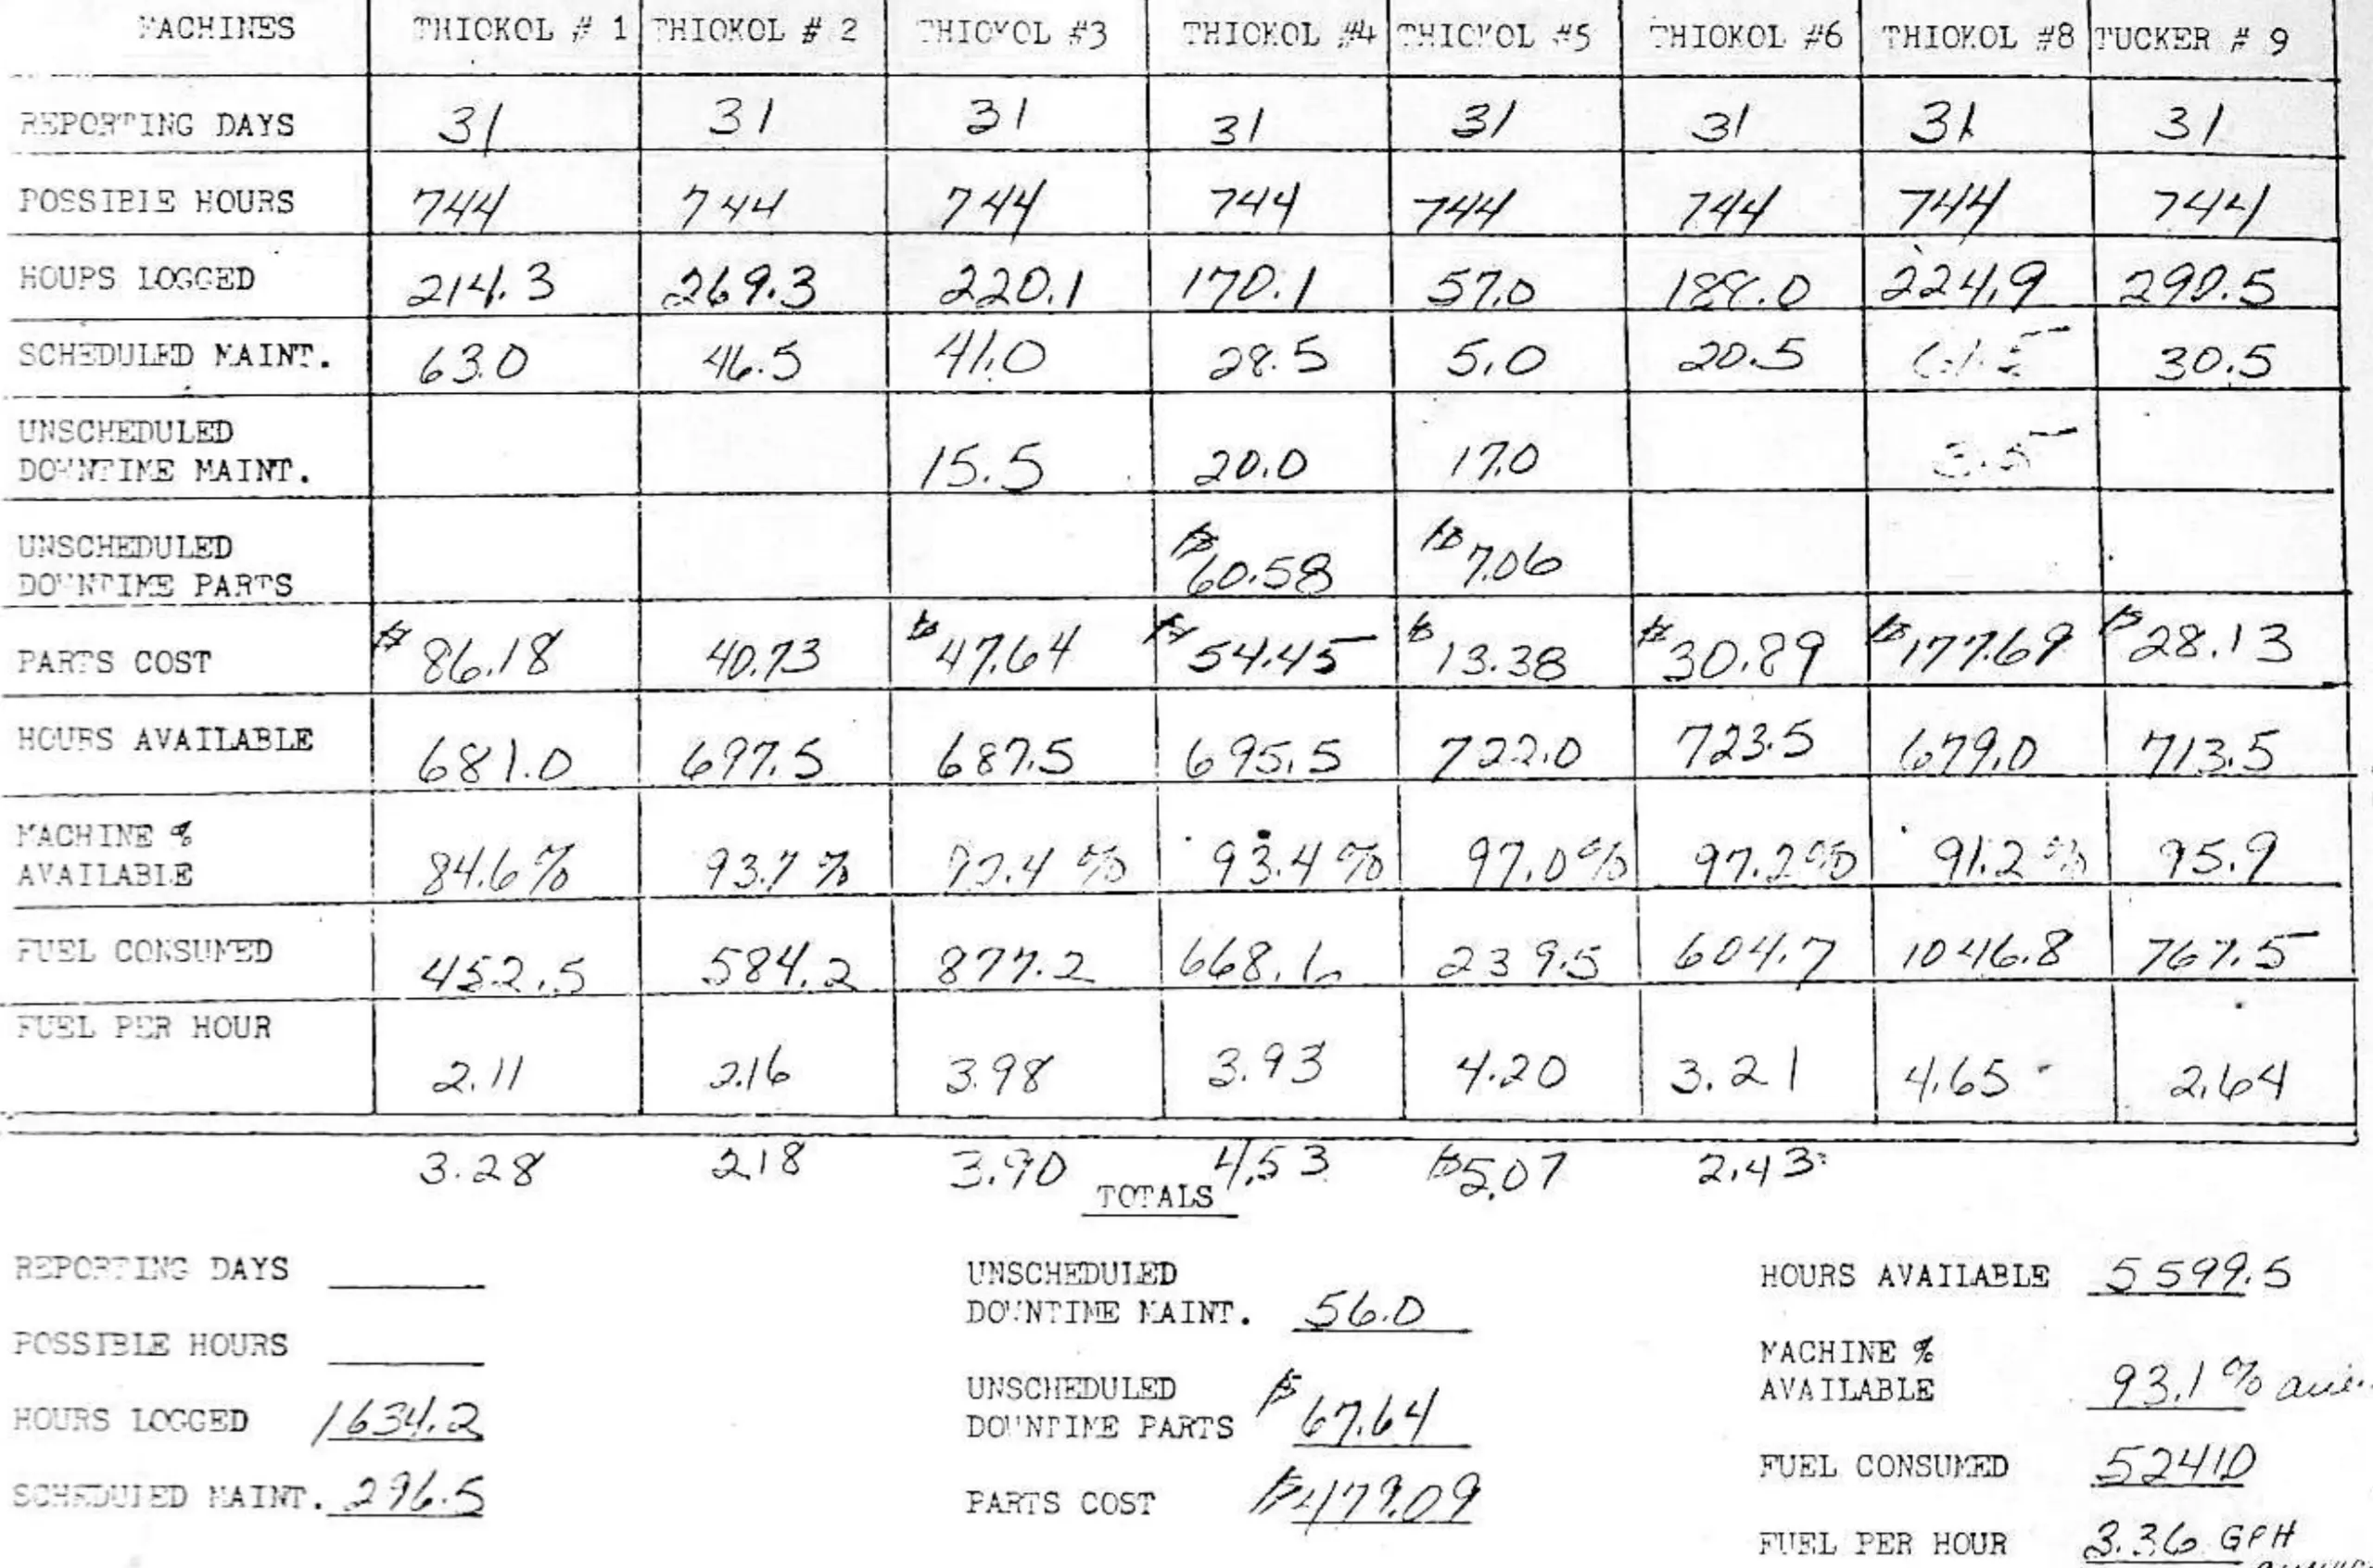 MACHINES THIOKOL # 1 THIOKOL # 2 THIOKOL #3 THIOKOL #4 THIOKOL #5 THIOKOL #6 THIOKOL #8 TUCKER # 9
REPORTING DAYS 31 31 31 31 31 31 31 31
POSSIBLE HOURS 744 744 744 744 744 744 744 744
HOURS LOGGED 214.3 269.3 220.1 170.1 57.0 188.0 224.9 290.5
SCHEDULED MAINT. 63.0 46.5 41.0 28.5 5.0 20.5 61.5 30.5
UNSCHEDULED
DOWNTIME MAINT. 15.5 20.0 17.0 3.5
UNSCHEDULED
DOWNTIME PARTS $60.58 $7.06
PARTS COST $86.18 40.73 $47.64 $54.45 $13.38 $30.89 $177.69 $28.13
HOURS AVAILABLE 681.0 697.5 687.5 695.5 722.0 723.5 679.0 713.5
MACHINE %
AVAILABLE 84.6% 93.7% 92.4% 93.4% 97.0% 97.2% 91.2% 95.9
FUEL CONSUMED 452.5 584.2 877.2 668.6 239.5 604.7 1046.8 767.5
FUEL PER HOUR
2.11 2.16 3.98 3.93 4.20 3.21 4.65 2.64
3.28 2.18 3.90 4.53 $5.07 2.43
TOTALS
REPORTING DAYS
POSSIBLE HOURS
HOURS LOGGED 1634.2
SCHEDULED MAINT. 296.5
UNSCHEDULED
DOWNTIME MAINT. 56.0
UNSCHEDULED
DOWNTIME PARTS $67.64
PARTS COST $479.09
HOURS AVAILABLE 5599.5
MACHINE %
AVAILABLE 93.1%
FUEL CONSUMED 5241.0
FUEL PER HOUR 3.36 GPH